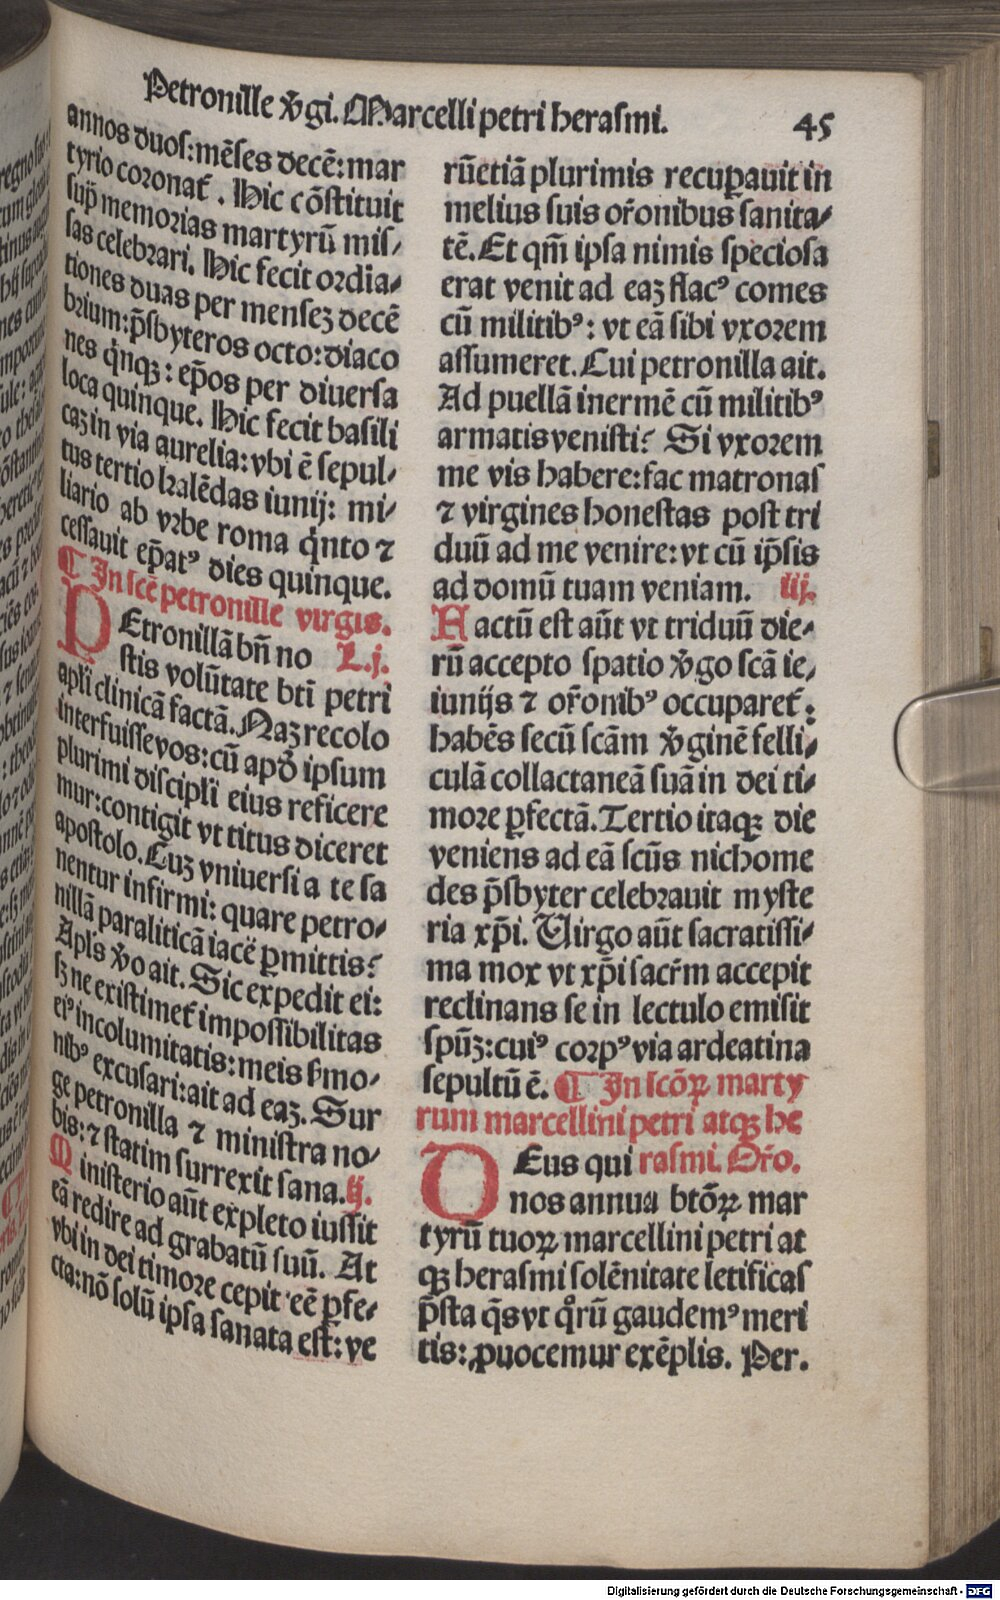 Petronille v̄gi. Marcelli petri herasmi. 45
annos duos: mēses decē: mar
tyrio coronat᷑. Hic cōstituit
sup̄ memorias martyrū mis⸗
sas celebrari. Hic fecit ordīa⸗
tiones duas per mensez decē
brium: p̄sbyteros octo: diaco
nes q̇nqꝫ: ep̄os per diuersa
loca quinque. Hic fecit basili
caꝫ in via aurelia: vbi ē sepul⸗
tus tertio kalēdas iunij: mi⸗
liario ab vrbe roma q̇nto ⁊
cessauit ep̄atꝰ dies quinque.
¶ In scē petronille virgis.
PEtronillā bn̄ no L. j.
stis volūtate bt̄i petri
apl̄i clinicā factā. Naꝫ recolo
interfuisse vos: cū apō ipsum
plurimi discipl̄i eius reficere
mur: contigit vt titus diceret
apostolo. Cuꝫ vniuersi a te sa
nentur infirmi: quare petro⸗
nillā paraliticā iacē ꝑmittis?
Apl̄s v̄o ait. Sic expedit ei:
sꝫ ne existimet᷑ impossibilitas
eiꝰ incolumitatis: meis s̄mo⸗
nibꝰ excusari: ait ad eaꝫ. Sur
ge petronilla ⁊ ministra no⸗
bis: ⁊ statim surrexit sana. ij.
Ministerio aūt expleto iussit
eā redire ad grabatū suū. At
vbi in dei timore cepit eē ꝑfe⸗
cta: nō solū ipsa sanata est: ve
rūetiā plurimis recuꝑauit in
melius suis or̄onibus sanita⸗
tē. Et qm̄ ipsa nimis speciosa
erat venit ad eaꝫ flacꝰ comes
cū militibꝰ: vt eā sibi vxorem
assumeret. Cui petronilla ait.
Ad puellā inermē cū militibꝰ
armatis venisti? Si vxorem
me vis habere: fac matronas
⁊ virgines honestas post tri
duū ad me venire: vt cū ip̄sis
ad domū tuam veniam. iij.
Factū est aūt vt triduū die⸗
rū accepto spatio v̄go scā ie⸗
iunijs ⁊ or̄onibꝰ occuparet᷑:
habēs secū scām v̄ginē felli⸗
culā collactaneā suā in dei ti⸗
more ꝑfectā. Tertio itaqꝫ die
veniens ad eā scūs nichome
des p̄sbyter celebrauit myste
ria xp̄i. Virgo aūt sacratissi⸗
ma mox vt xp̄i sacr̄m accepit
reclinans se in lectulo emisit
sp̄uꝫ: cuiꝰ corpꝰ via ardeatina
sepultū ē. ¶ In scōꝝ marty
rum marcellini petri atqꝫ he
DEus qui rasmi. Or̄o.
nos annua btōꝝ mar
tyrū tuoꝝ marcellini petri at
qꝫ herasmi solēnitate letificas
p̄sta q̄s vt qͦrū gaudemꝰ meri
tis: ꝓuocemur exēplis. Per.
Digitalisierung gefördert durch die Deutsche Forschungsgemeinschaft - DFG